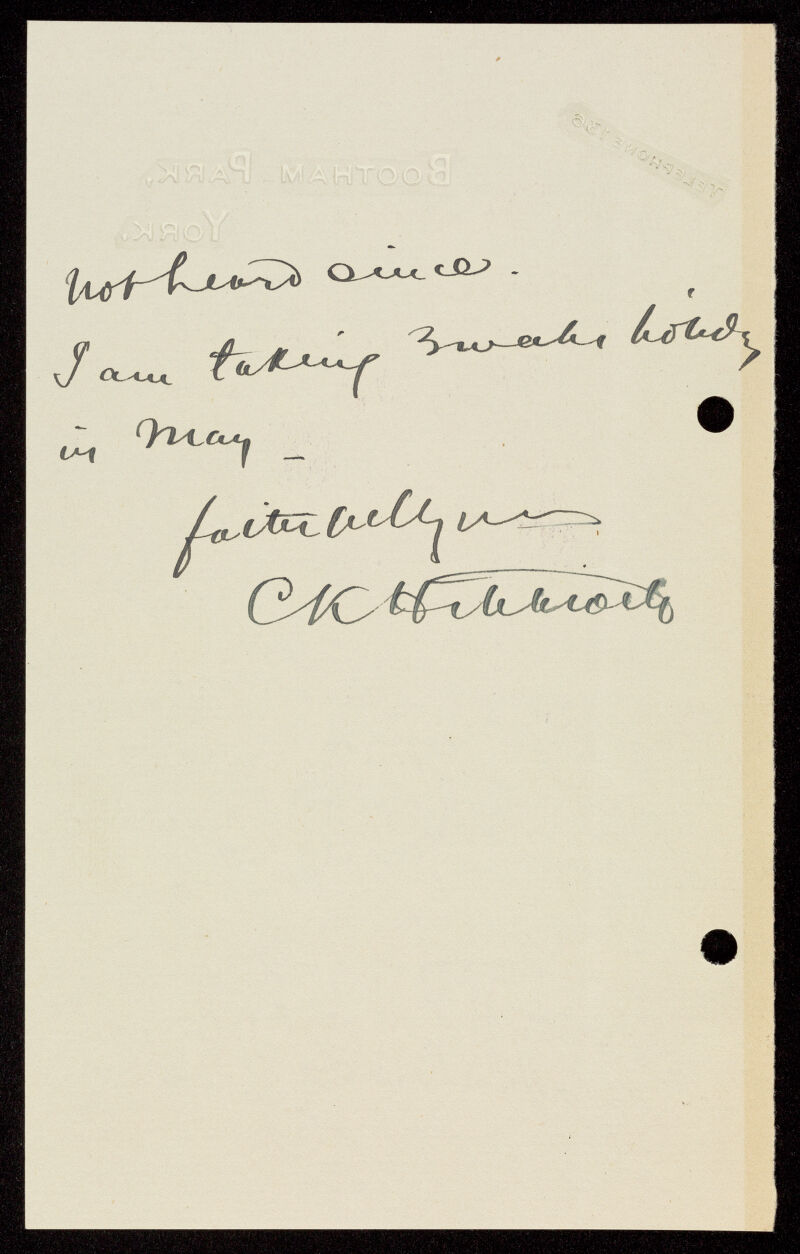 TELEPHONE 136
BOOTHAM PARK,
YORK.
not heard since.
I am taking 3 weeks holiday
in May –
faithfully yrs
C K Hitchcock